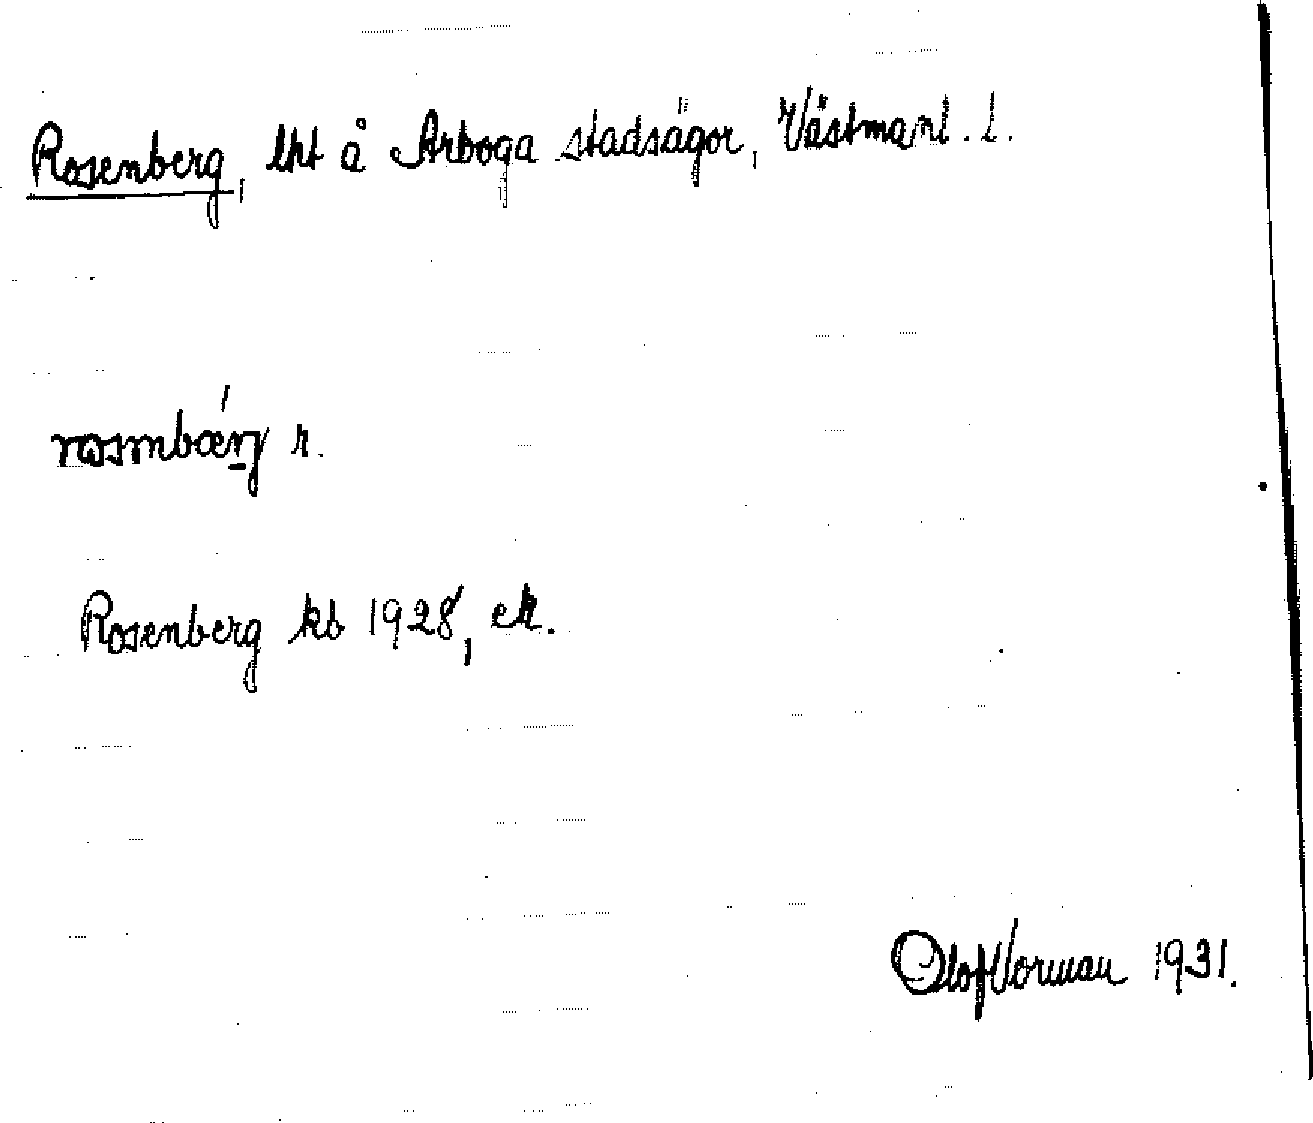 Rosenberg, lht å Arboga stadsägor, Västmanl. l.
rosmbærj r.
Rosenberg kb 1928, ek.
Olof Vorman 1931.